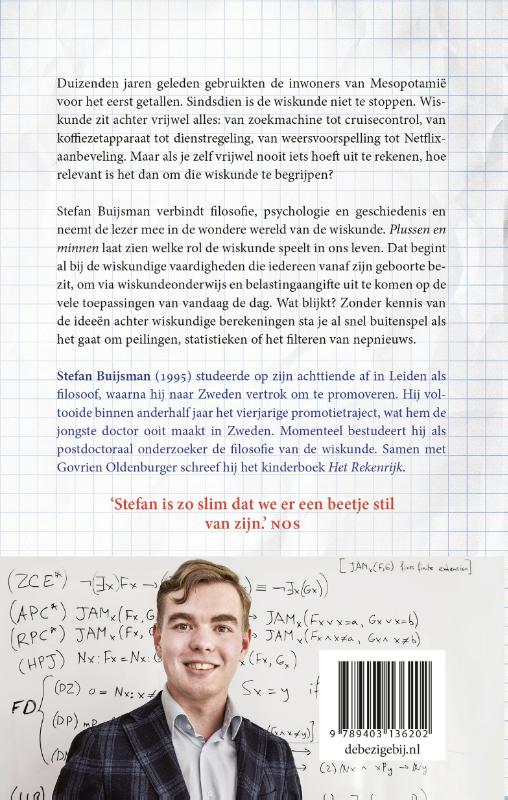 Duizenden jaren geleden gebruikten de inwoners van Mesopotamië
voor het eerst getallen. Sindsdien is de wiskunde niet te stoppen. Wis-
kunde zit achter vrijwel alles: van zoekmachine tot cruisecontrol, van
koffiezetapparaat tot dienstregeling, van weersvoorspelling tot Netflix-
aanbeveling. Maar als je zelf vrijwel nooit iets hoeft uit te rekenen, hoe
relevant is het dan om die wiskunde te begrijpen?
Stefan Buijsman verbindt filosofie, psychologie en geschiedenis en
neemt de lezer mee in de wondere wereld van de wiskunde. Plussen en
minnen laat zien welke rol de wiskunde speelt in ons leven. Dat begint
al bij de wiskundige vaardigheden die iedereen vanaf zijn geboorte be-
zit, om via wiskundeonderwijs en belastingaangifte uit te komen op de
vele toepassingen van vandaag de dag. Wat blijkt? Zonder kennis van
de ideeën achter wiskundige berekeningen sta je al snel buitenspel als
het gaat om peilingen, statistieken of het filteren van nepnieuws.
Stefan Buijsman (1995) studeerde op zijn achttiende af in Leiden als
filosoof, waarna hij naar Zweden vertrok om te promoveren. Hij vol-
tooide binnen anderhalf jaar het vierjarige promotietraject, wat hem de
jongste doctor ooit maakt in Zweden. Momenteel bestudeert hij als
postdoctoraal onderzoeker de filosofie van de wiskunde. Samen met
Govrien Oldenburger schreef hij het kinderboek Het Rekenrijk.
‘Stefan is zo slim dat we er een beetje stil
van zijn.’ NOS
[JAMx(F,G) finite extension]
(ZCE*) ¬(∃x)Fx → ≡ ¬∃x(Gx))
(APC*) JAMx(Fx,G → JAMx(Fx∨x=a, Gx∨x=b)
(RPC*) JAMx(Fx, → JAMx(Fx∧x≠a, Gx∧x≠b)
(HPJ) Nx:Fx=Nx: (Fx,Gx)
FD (DZ) 0=Nx:x≠ Sx=y if
(DP)
9 789403 136202
debezigebij.nl